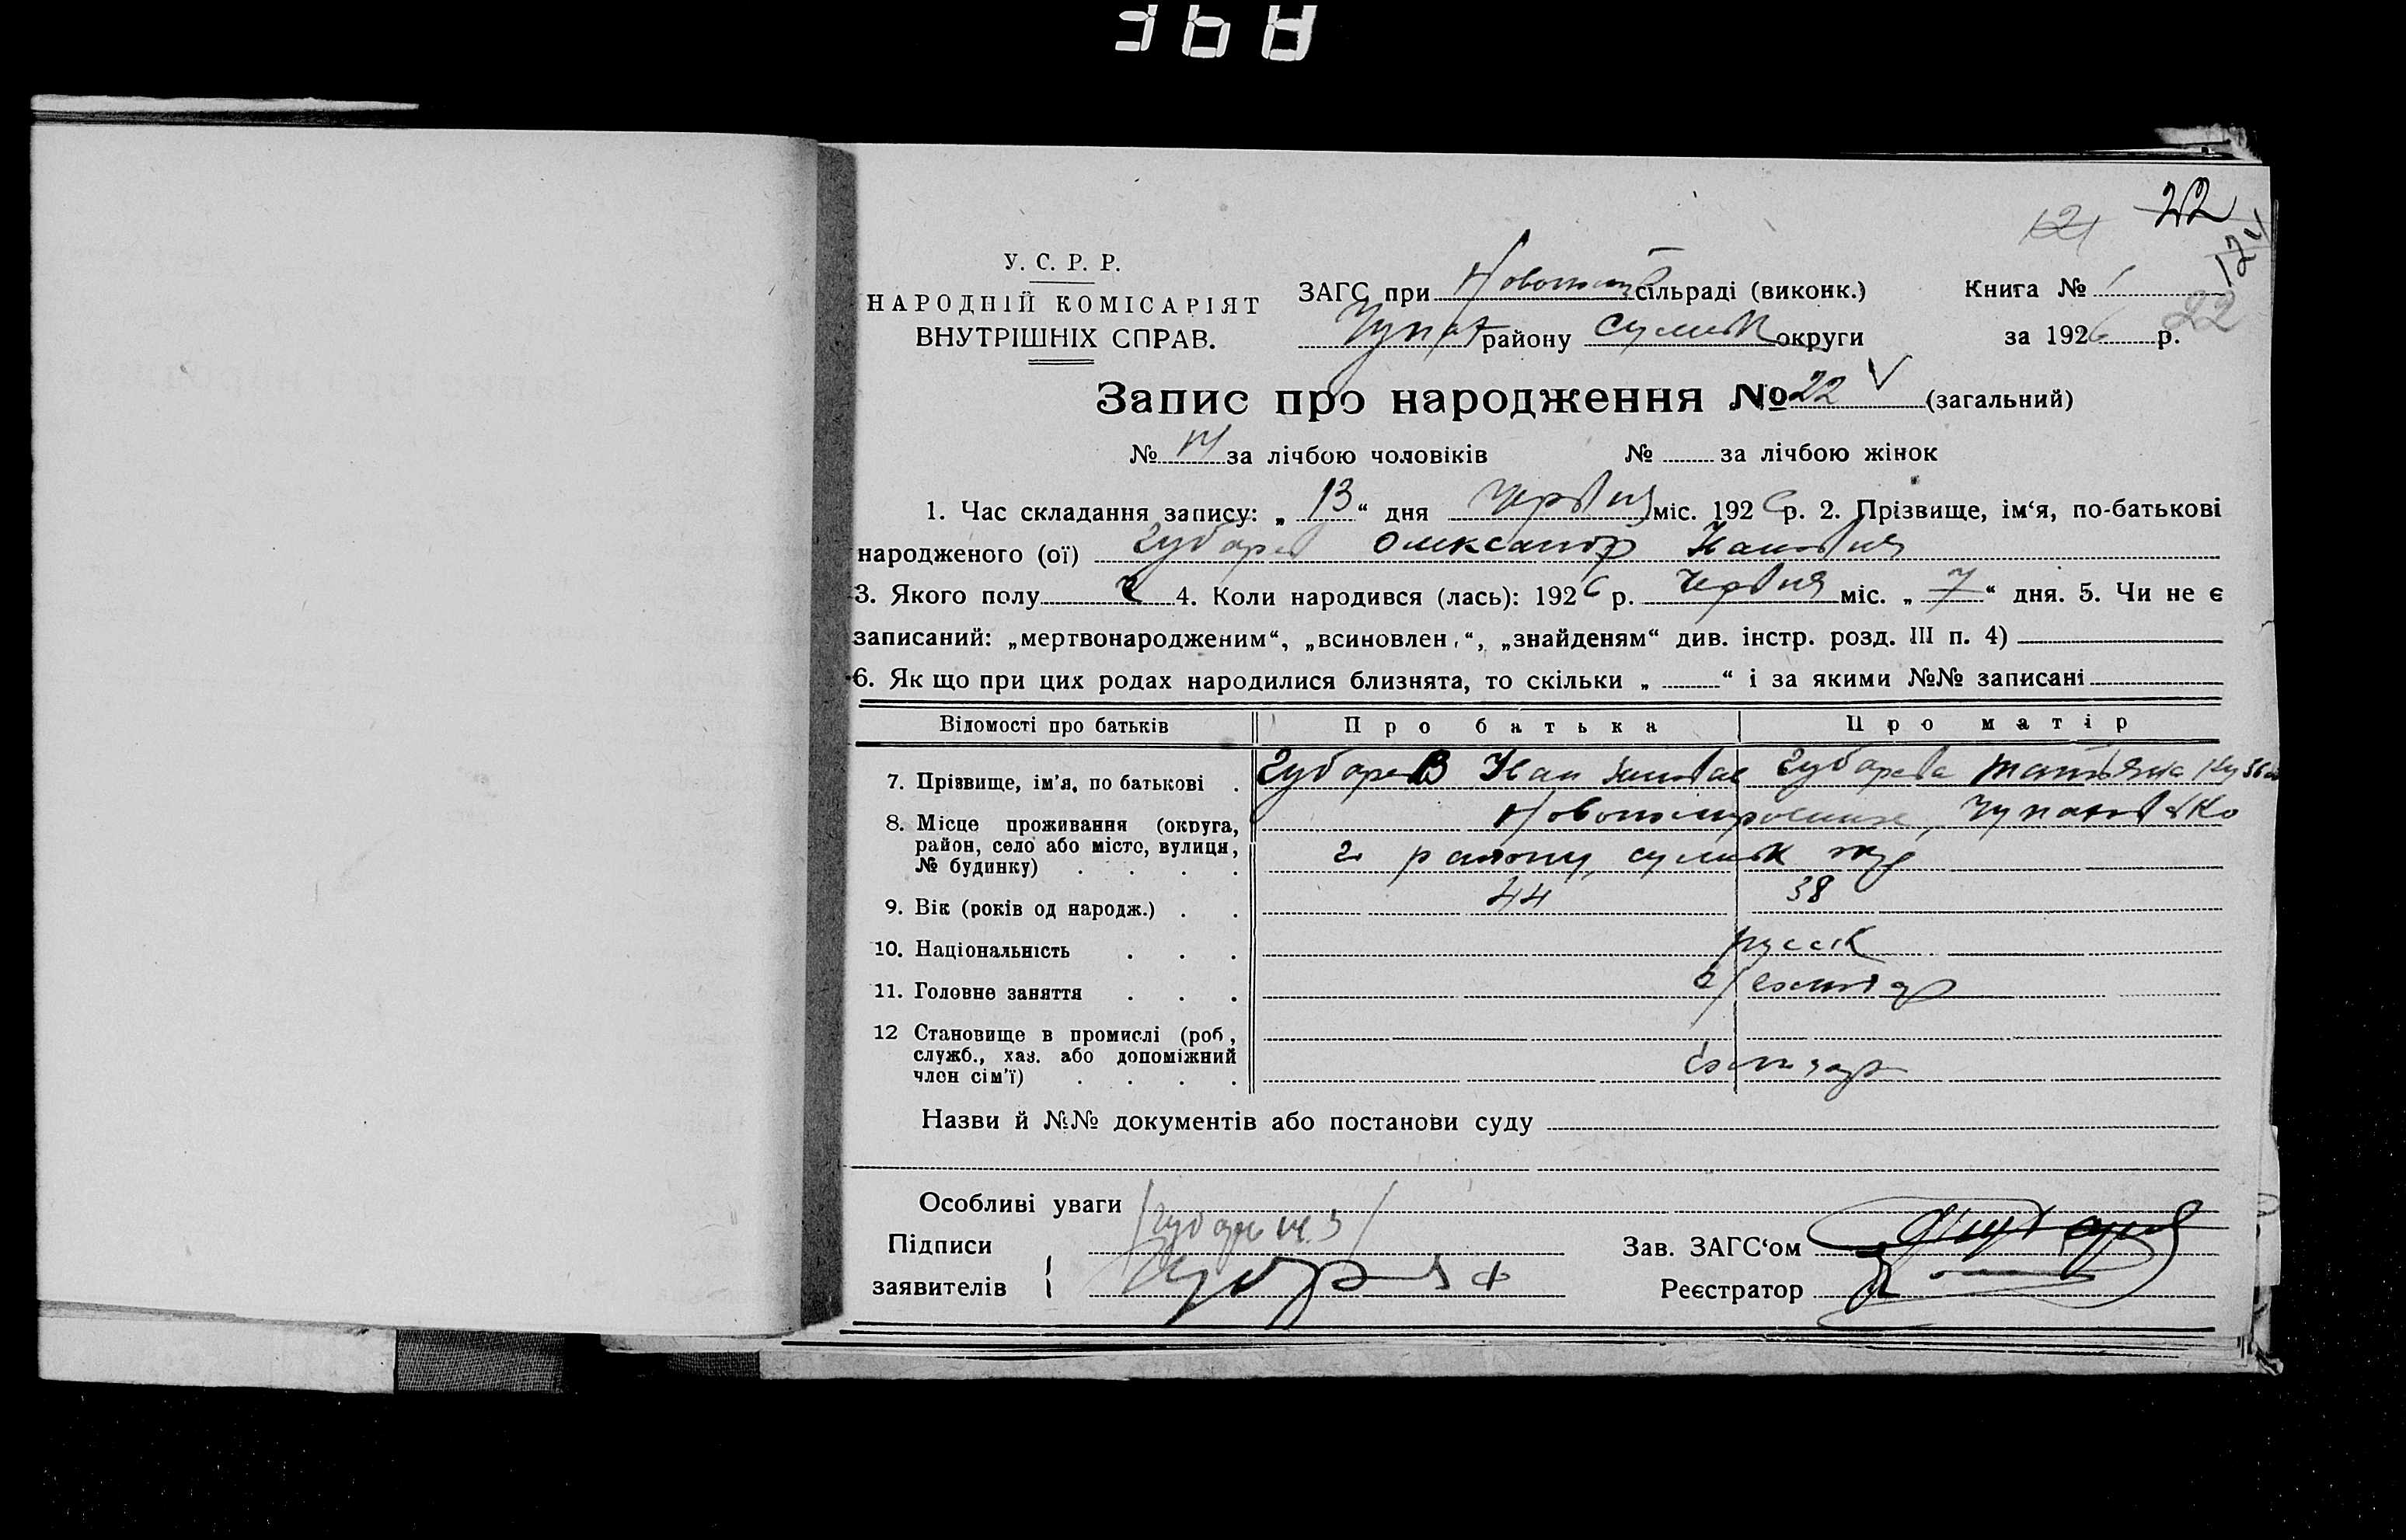 368
22
У. С. Р. Р.
НАРОДНІЙ КОМІСАРІЯТ
ВНУТРІШНІХ СПРАВ.
ЗАГС при сільраді (виконк.)
району Сумськ округи
Книга № 1
за 1926 р.
22
Запис про народження № 22 (загальний)
№ за лічбою чоловіків № за лічбою жінок
1. Час складання запису: „ 13 “ дня Червня міс. 1926 р. 2. Прізвище, ім‘я, по-батькові
народженого (ої) Губарев Олександр
3. Якого полу ч 4. Коли народився (лась): 1926 р. Червня міс. „ 7 “ дня. 5. Чи не є
записаний: „мертвонародженим“, „всиновлен.“, „знайденям“ див. інстр. розд. III п. 4)
6. Як що при цих родах народилися близнята, то скільки „ “ і за якими №№ записані
Відомості про батьків Про батька Про матір
7. Прізвище, ім’я, по батькові . Губарев Губарева
8. Місце проживання (округа,
район, село або місто, вулиця, району, Сумськ окр
№ будинку) . . . .
9. Вік (років од народж.) . . 44 38
10. Національність . . . русск
11. Головне заняття . . .
12 Становище в промислі (роб.,
служб., хаз. або допоміжний
член сім’ї) . . . .
Назви й №№ документів або постанови суду
Особливі уваги
Підписи
заявителів
Зав. ЗАГС‘ом
Реєстратор